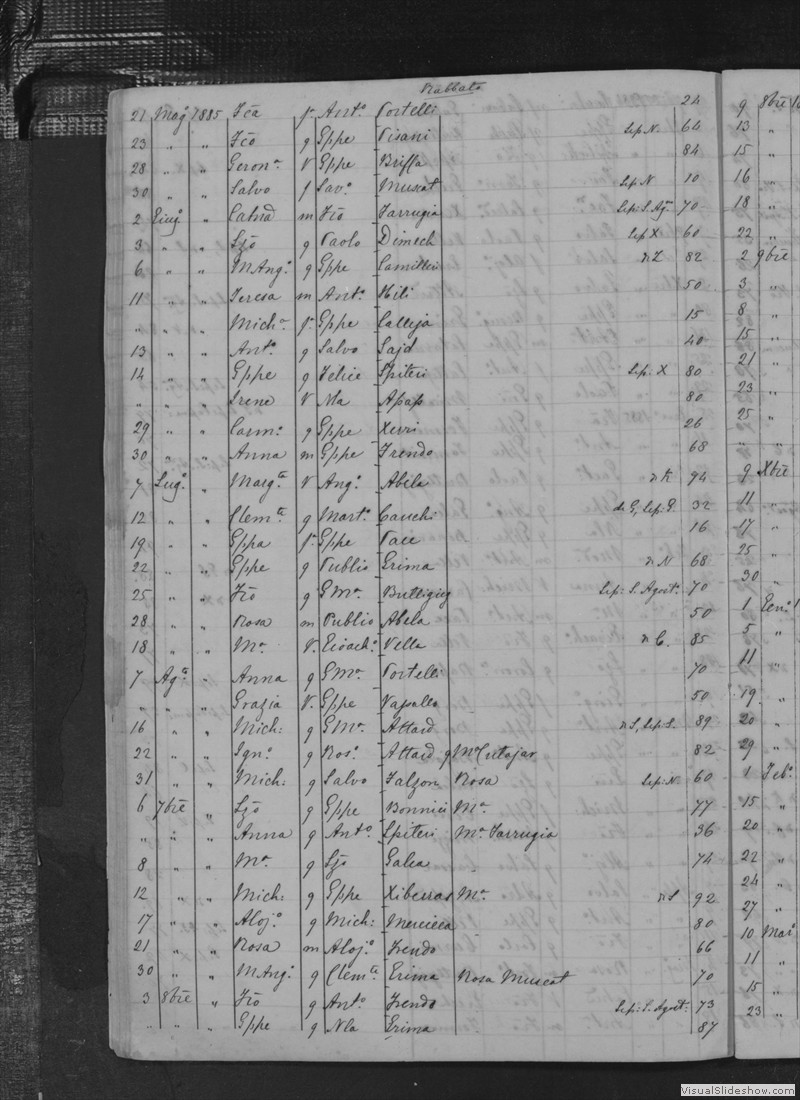 Rabbato
21 Mag.º 1885 Fca f. Ant.º Portelli 24
23 " " Fco g Gppe Pisani Sep. N. 64
28 " " Geron.ª V Gppe Briffa 84
30 " " Salvo f Sav.º Muscat Sep. N 10
2 Giug.º " Catnd m Fco Farrugia Sep: S. Ag.º 70
3 " " Lzo g Paolo Dimech Sep. X 60
6 " " MAng.ª g Gppe Camilleri n Z 82
11 " " Teresa m Ant.º Hili 50
" " " Mich.ª f. Gppe Calleja 15
13 " " Ant.º g Salvo Sajd 40
14 " " Gppe g Felice Spiteri Sep. X 80
" " " Irene V Nla Apap 80
29 " " Carm.º g Gppe Xerri 26
30 " " Anna m Gppe Frendo 68
7 Lug.º " Marg.ta V Ang.º Abela n K 94
12 " " Clem.te g Mart.º Cauchi d. G, Sep. G. 32
19 " " Gppa f. Gppe Pace 16
22 " " Gppe g Publio Grima n N 68
25 " " Fco g GMª. Buttigieg Sep: S. Agost.º 70
28 " " Rosa m Publio Abela 50
18 " " Mª. V. Gioach.º Vella n C. 85
7 Ag.to " Anna g GMª. Portelli 70
" " " Grazia V. Gppe Vassallo 50
16 " " Mich: g GMª. Attard n S, Sep. S. 89
22 " " Ign.º g Ros.º Attard g Mª Cutajar 82
31 " " Mich: g Salvo Falzon Rosa Sep: N 60
6 7bre " Lzo g Gppe Bonnici Mª. 77
" " " Anna g Ant.º Spiteri Mª. Farrugia 36
8 " " Mª. g Lzo Galea 74
12 " " Mich: g Gppe Xiberras Mª. n S 92
17 " " Aloj.º g Mich: Mercieca 80
21 " " Rosa m Aloj.º Frendo 66
30 " " MAng.ª g Clem.te Grima Rosa Muscat 70
3 8bre " Fco g Ant.º Frendo Sep: S. Agost: 73
" " " Gppe g Nla Grima 87
9 8bre
13 "
15 "
16 "
18 "
22 "
2 9bre
3 "
8 "
15 "
21 "
23 "
25 "
" "
9 Xbre
11 "
17 "
25 "
30 "
1 Gen.º
5 "
11 "
19 "
20 "
29 "
1 Feb.º
15 "
20 "
22 "
24 "
27 "
10 Mar.º
11 "
15 "
23 "
VisualSlideshow.com